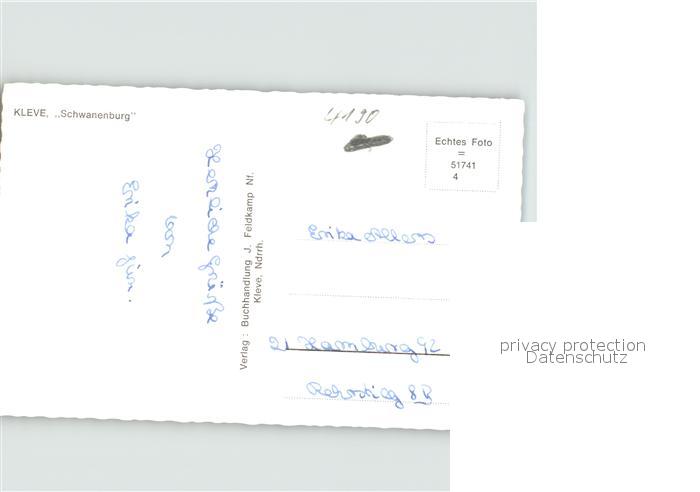 KLEVE, „Schwanenburg"
4190
Echtes Foto
=
51741
4
Herzliche Grüße
von
Erika
Verlag: Buchhandlung J. Feldkamp Nf.
Kleve, Ndrrh.
Erika
21 Hamburg 92
privacy protection
Datenschutz